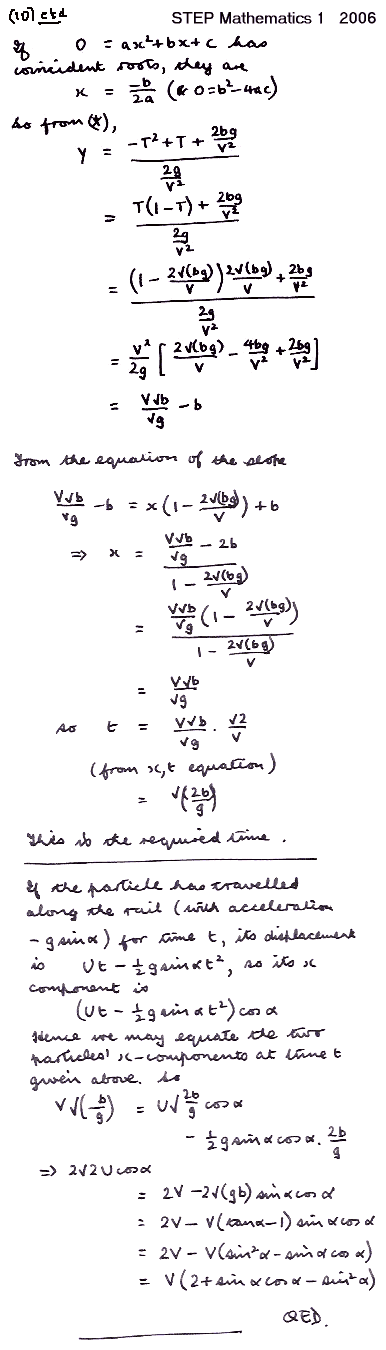 (10) ctd STEP Mathematics 1 2006
If 0 = ax²+bx+c has
coincident roots, they are
x = -b/2a (& 0=b²-4ac)
So from (*),
y = (-T²+T+2bg/V²)/(2g/V²)
= (T(1-T)+2bg/V²)/(2g/V²)
= ((1-2√(bg)/V)2√(bg)/V+2bg/V²)/(2g/V²)
= V²/2g [2√(bg)/V - 4bg/V² + 2bg/V²]
= V√b/√g - b
From the equation of the slope
V√b/√g - b = x(1-2√(bg)/V)+b
⇒ x = (V√b/√g - 2b)/(1-2√(bg)/V)
= (V√b/√g (1-2√(bg)/V))/(1-2√(bg)/V)
= V√b/√g
so t = V√b/√g . √2/V
(from x,t equation)
= √(2b/g)
This is the required time.
If the particle has travelled
along the rail (with acceleration
-g sinα) for time t, its displacement
is Ut - ½g sinα t², so its x
component is
(Ut - ½g sinα t²) cosα
Hence we may equate the two
particles' x-components at time t
given above. So
V√(b/g) = U√2b/g cosα
- ½g sinα cosα. 2b/g
⇒ 2√2 U cosα
= 2V - 2√(gb) sinα cosα
= 2V - V(tanα-1) sinα cosα
= 2V - V(sin²α - sinα cosα)
= V(2+sinα cosα - sin²α)
QED.